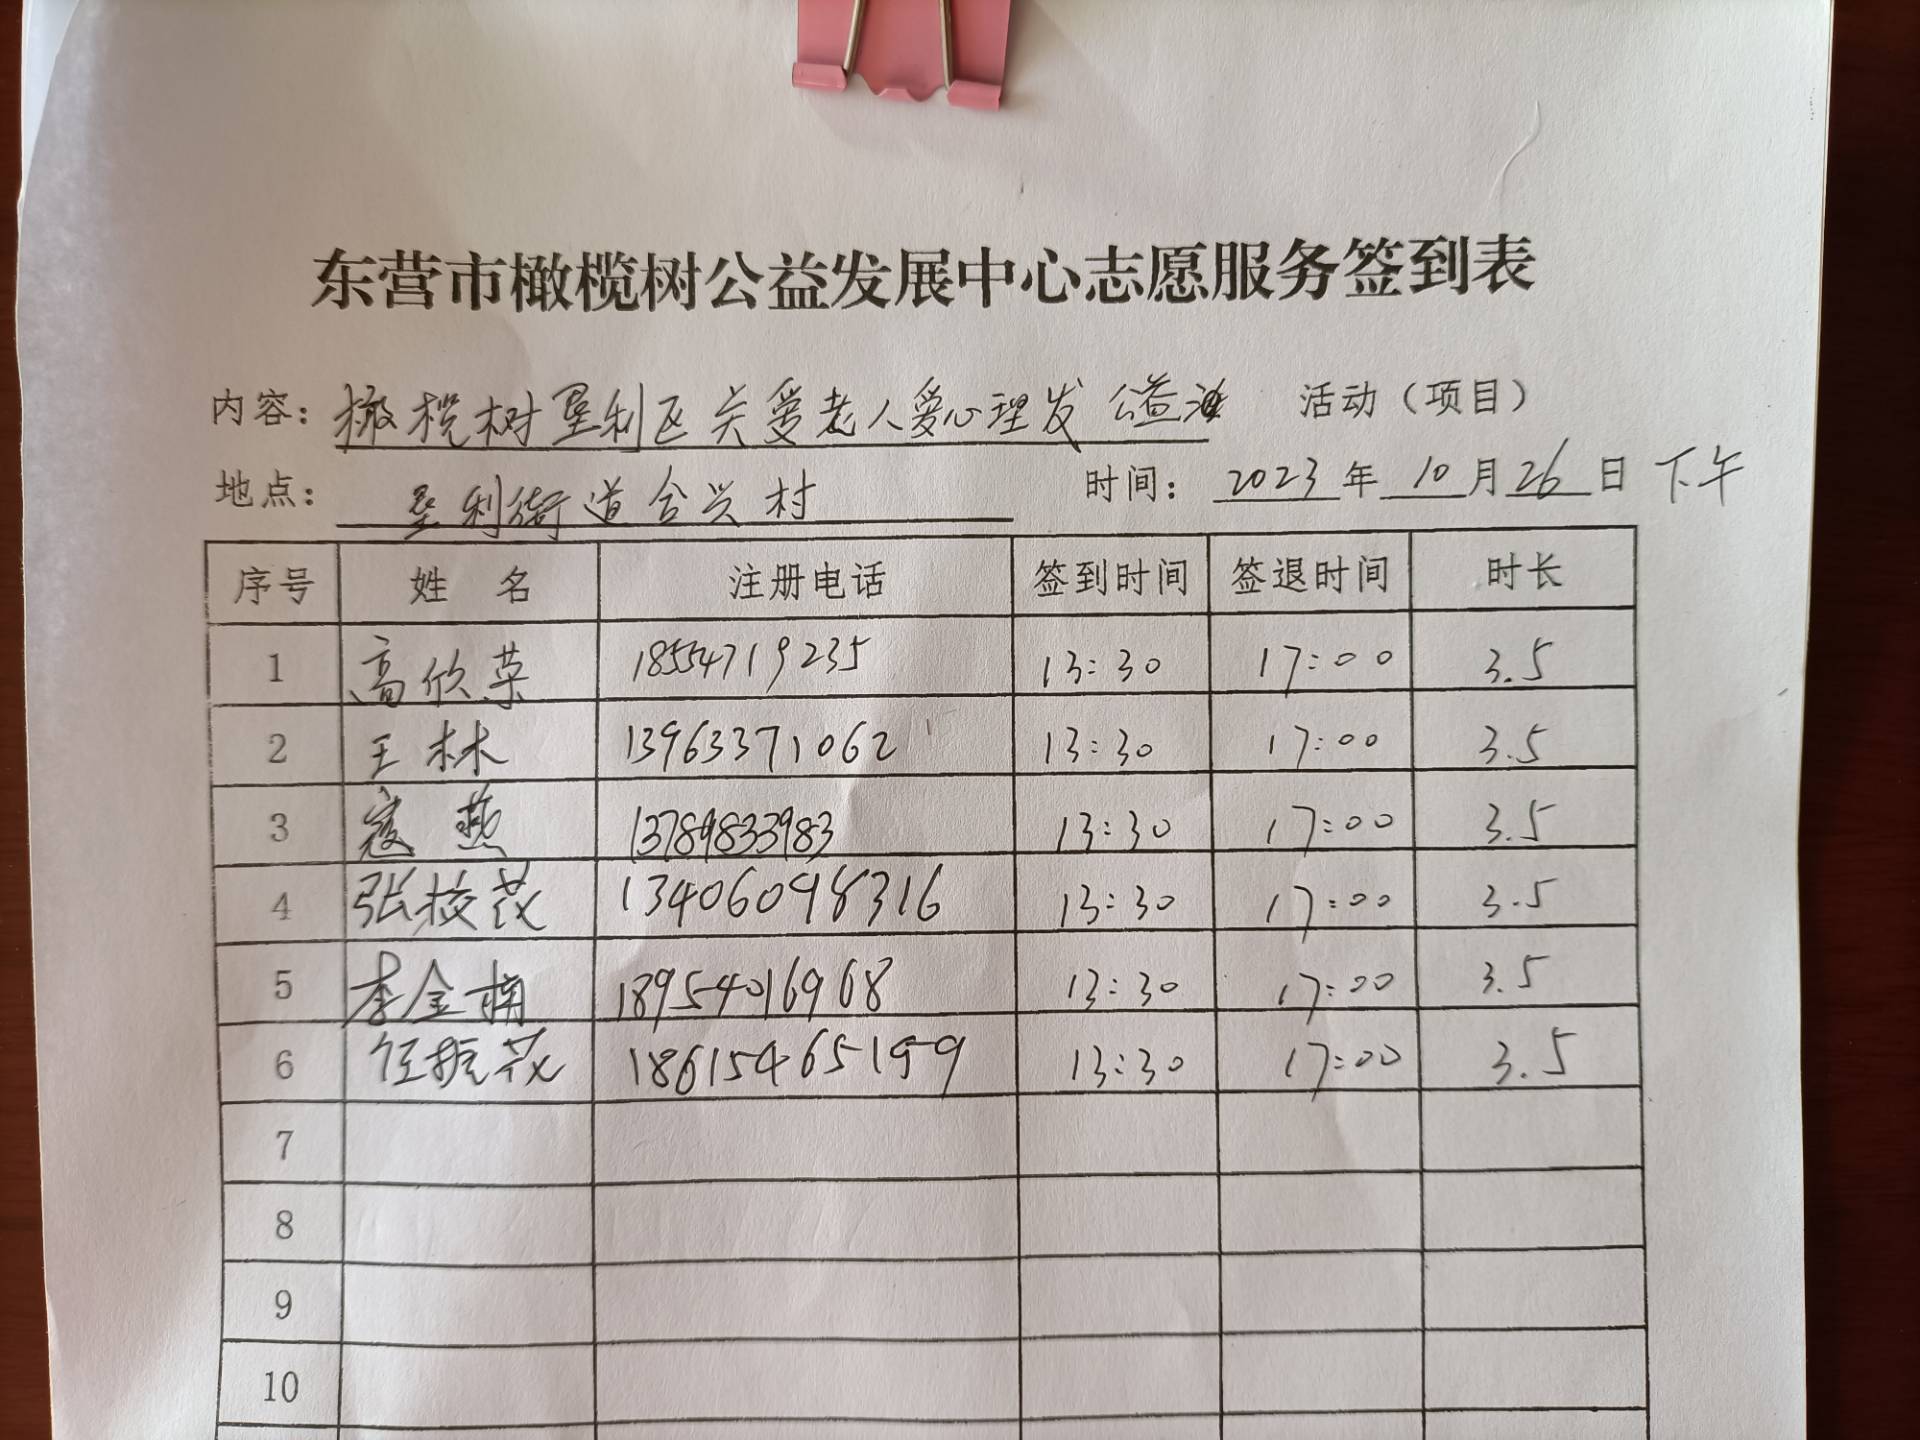 东营市橄榄树公益发展中心志愿服务签到表
内容：橄榄树垦利区关爱老人爱心理发公益 活动（项目）
地点：垦利街道合兴村 时间：2023年10月26日下午
序号 姓 名 注册电话 签到时间 签退时间 时长
1 高欣荣 18554719235 13:30 17:00 3.5
2 王林 13963371062 13:30 17:00 3.5
3 寇燕 13789833983 13:30 17:00 3.5
4 张校茂 13406098316 13:30 17:00 3.5
5 李金楠 18954016968 13:30 17:00 3.5
6 任振花 18615465199 13:30 17:00 3.5
7
8
9
10